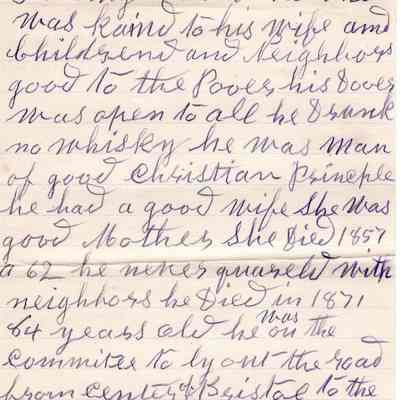 was kaind to his wife and
Childrend and Neighbors
good to the Poor his Door
was open to all he Drunk
no whisky he was man
of good Christian Principle
he had a good wife She was
good Mother She Died 1857
a 62 he never quareld with
neighbors he Died in 1871
84 years old he was on the
Commitee to ly out the road
from Center & Bristol to the